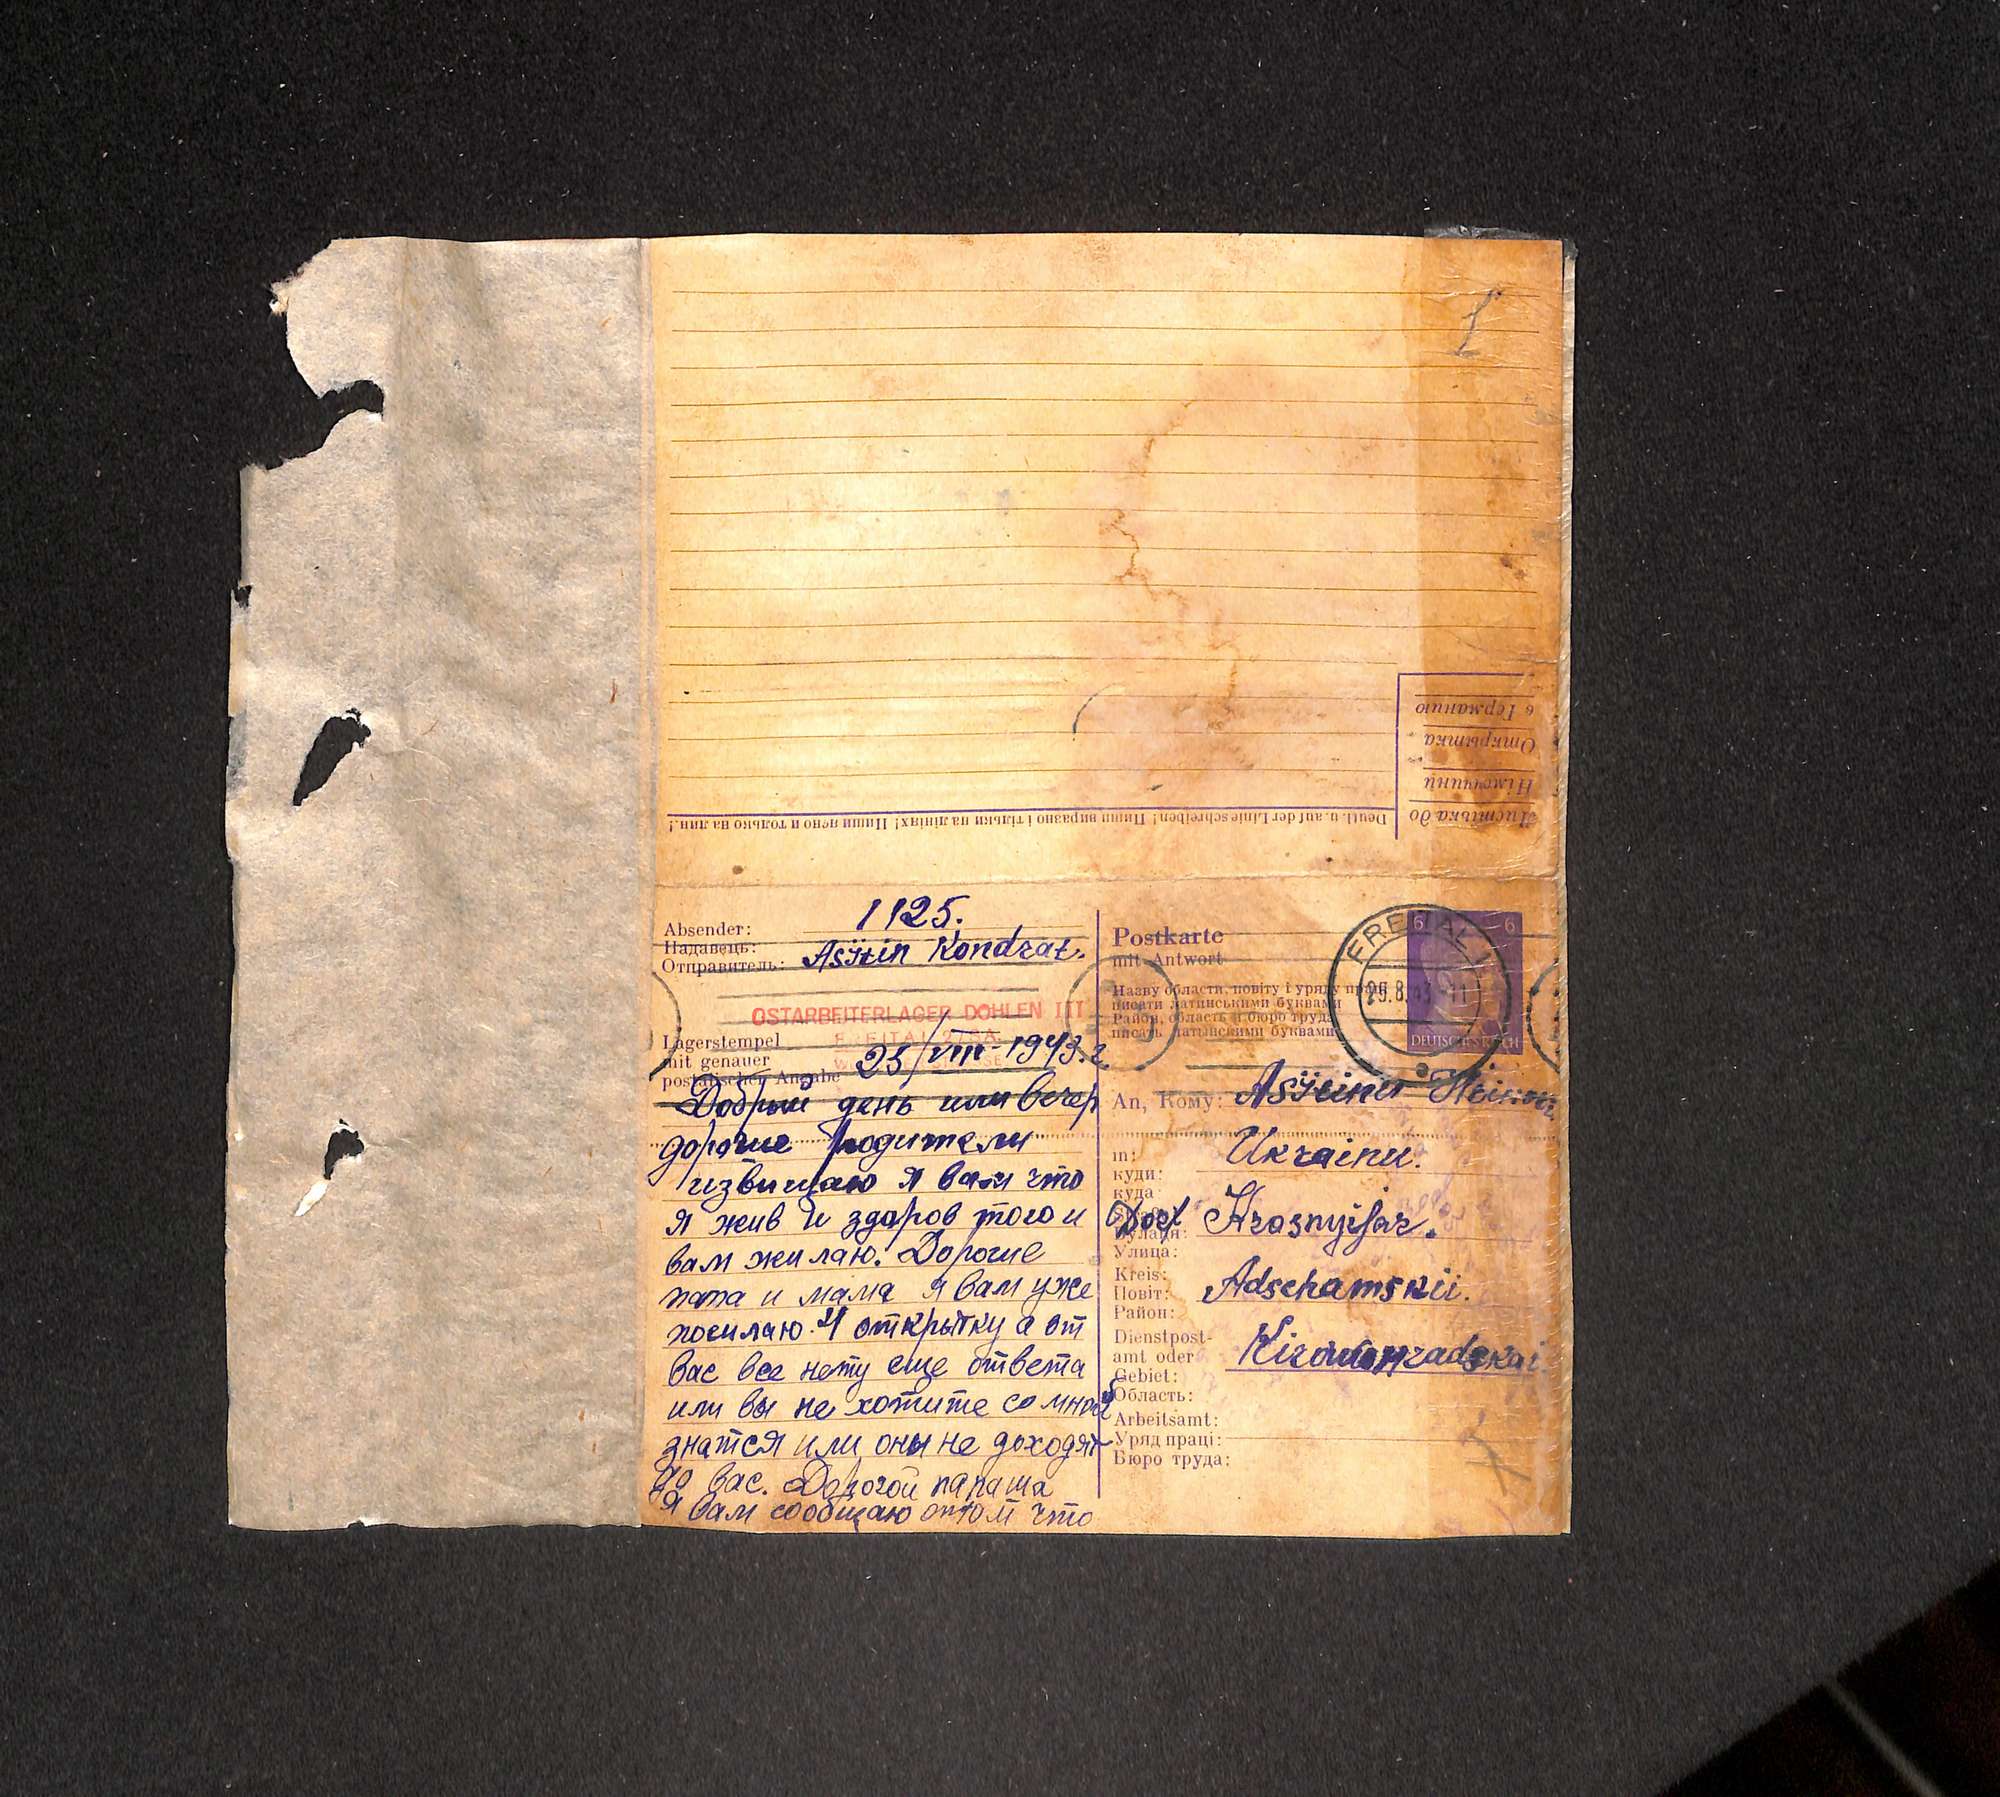 в Германию
Открытка
Німеччини
Листівка до
Deutl. u. auf der Linie schreiben! Пиши виразно і тільки на лініях! Пиши ясно и только на лин.!
1125.
Absender:
Надавець:
Отправитель:
Kondrat.
OSTARBEITERLAGER DÖHLEN III
FREITAL 2 SA
Lagerstempel
mit genauer
postalischer Angabe
25/VIII-1943.г
Добрый день или вечер
дорогие родители
извищаю я вам что
я жив и здоров того и
вам жилаю. Дорогие
папа и мама я вам уже
посилаю 4 открытку а от
вас все нету еще ответа
или вы не хотите со мной
знатся или оны не доходят
до вас. Дорогой папаша
я вам сообщаю о том что
Postkarte
mit Antwort
Назву области, повіту і уряду праці
писати латинськими буквами
Район, область и бюро труда
писать латынскими буквами
FREITAL 1
25.8.43-11
6 6
DEUTSCHES REICH
An, Кому:
in: Ukrainu.
куди:
куда
Dorf Krasnyijar.
Вулиця:
Улица:
Kreis: Adschamskii.
Повіт:
Район:
Dienstpost-
amt oder
Gebiet:
Область:
Arbeitsamt:
Уряд праці:
Бюро труда: